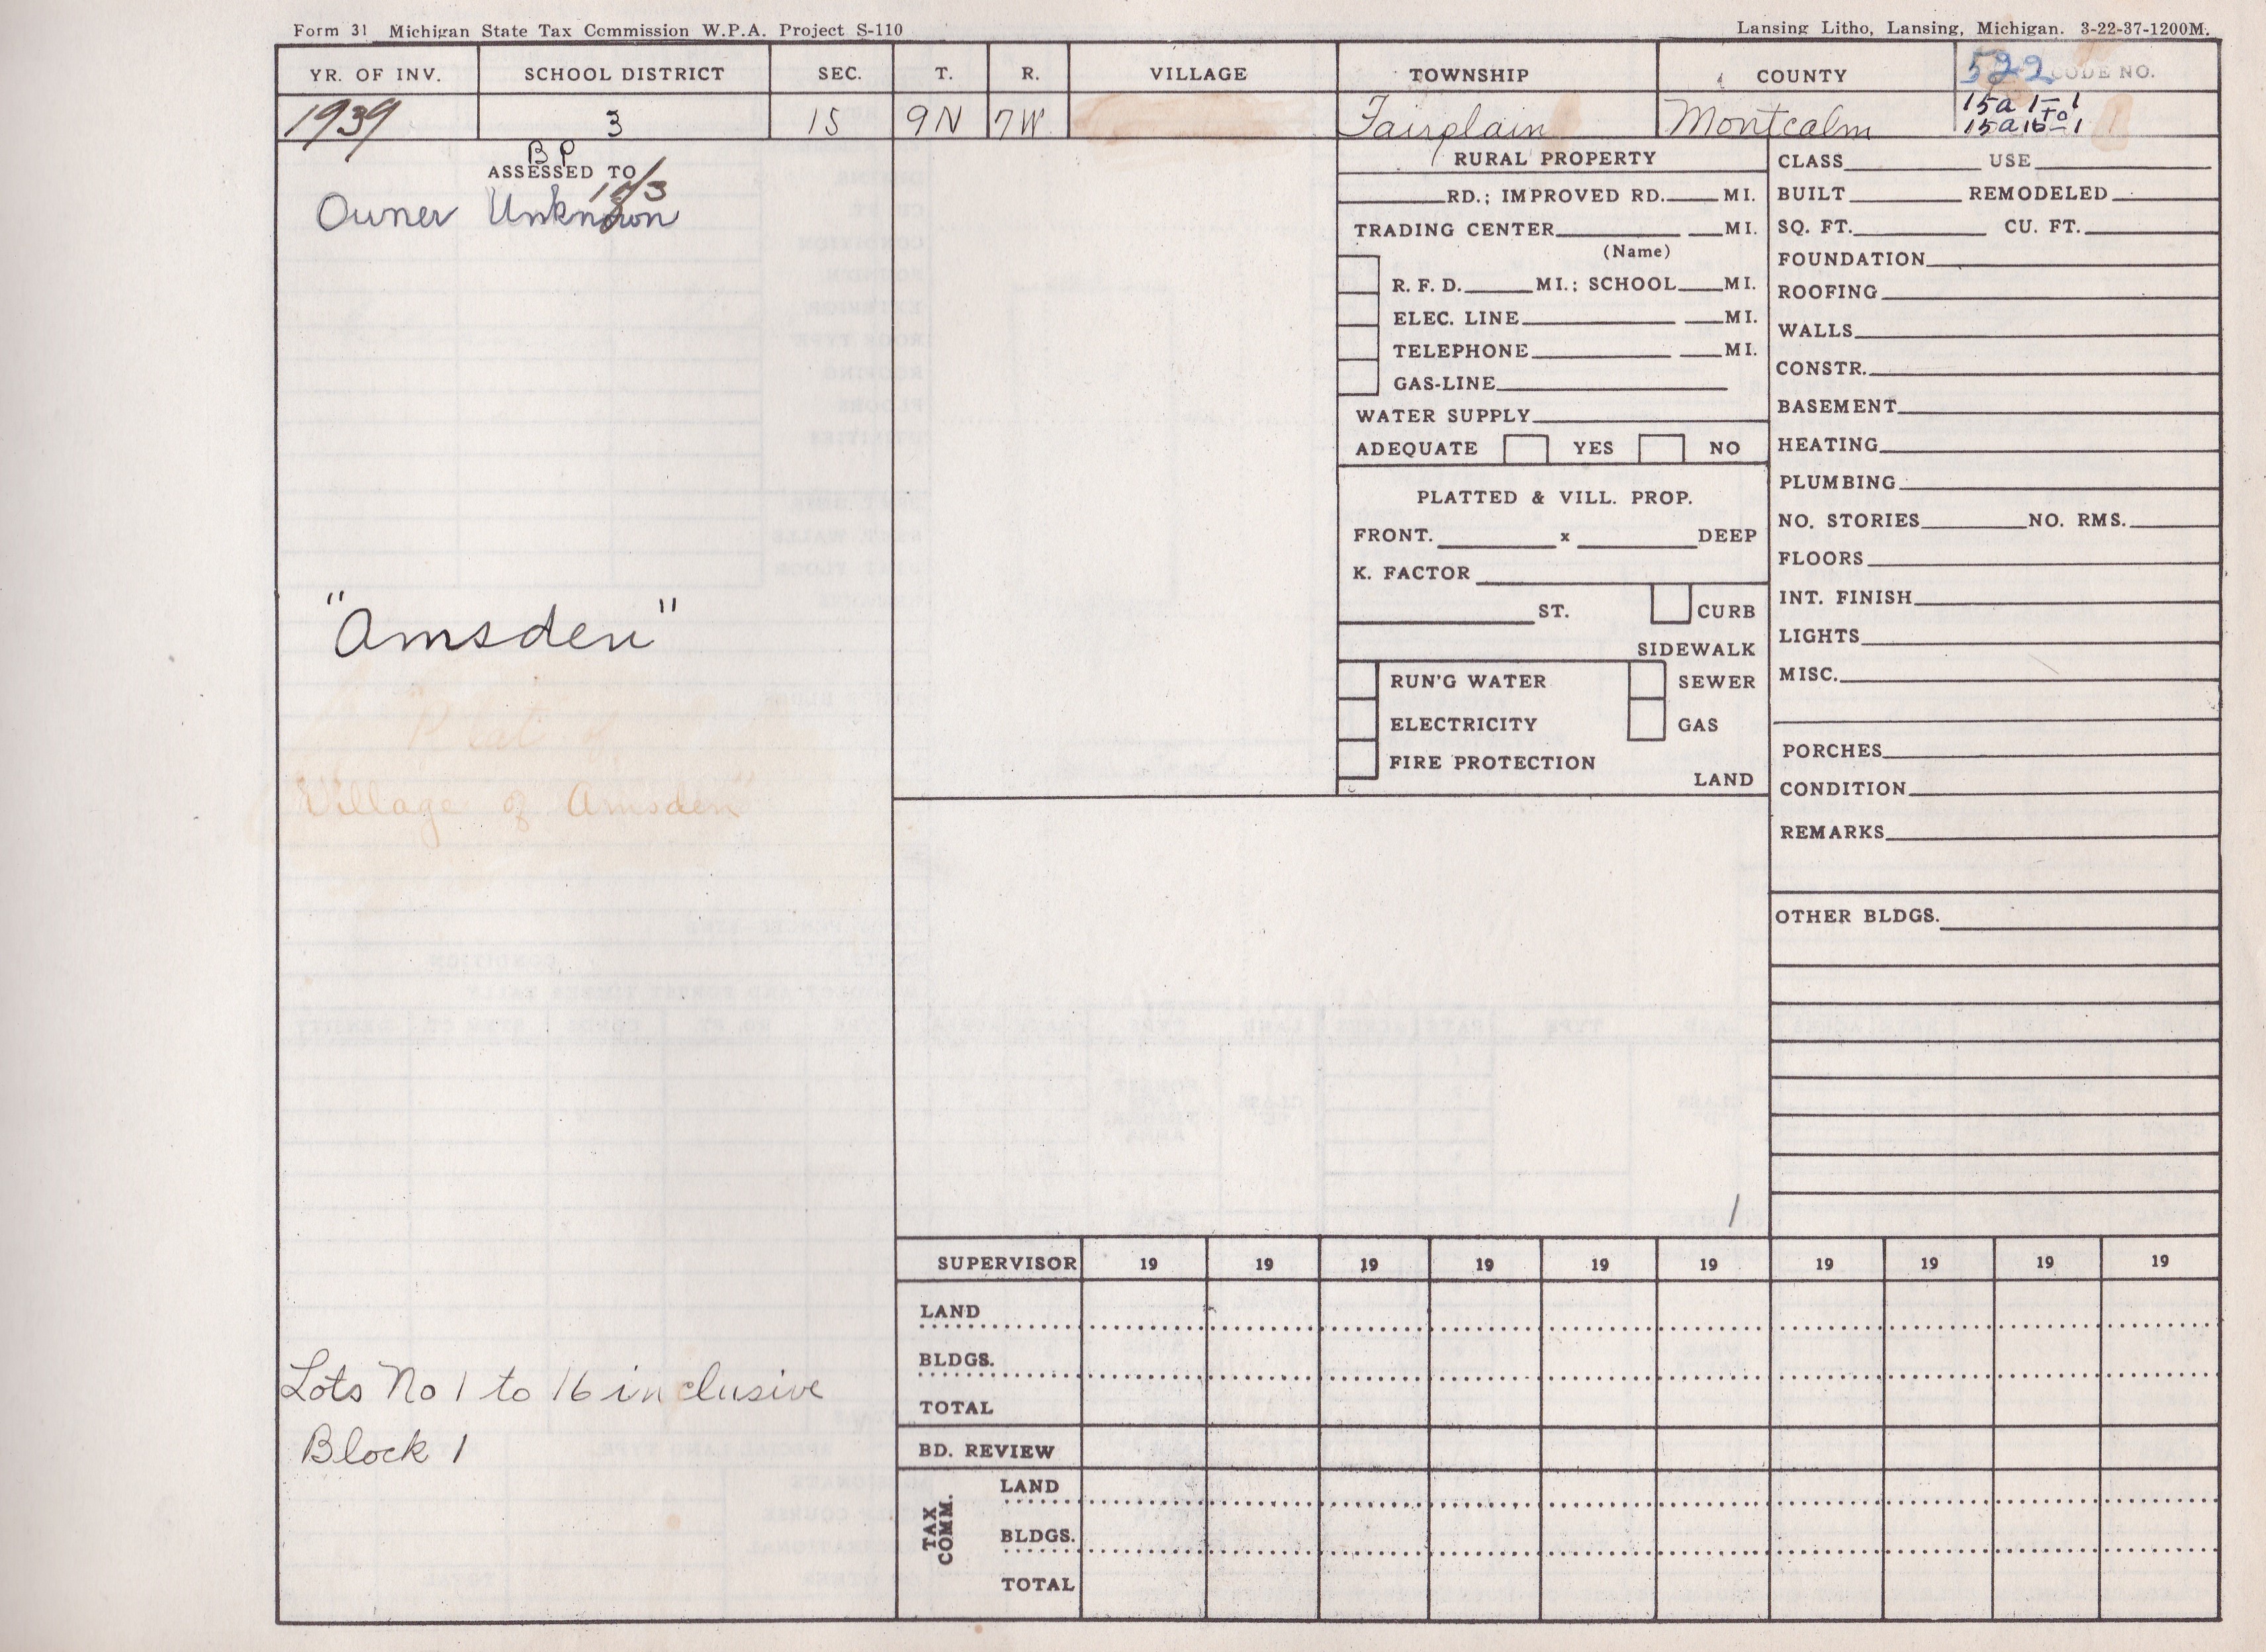 Form 31 Michigan State Tax Commission W.P.A. Project S-110
Lansing Litho, Lansing, Michigan. 3-22-37-1200M.
YR. OF INV. SCHOOL DISTRICT SEC. T. R. VILLAGE TOWNSHIP COUNTY 522 CODE NO.
1939 3 15 9N 7W Fairplain Montcalm 15a 1-1
To
15a16-1
B P
ASSESSED TO
10/3
Owner Unknown
"Amsden"
Plat of
Village of Amsden"
Lots No 1 to 16 inclusive
Block 1
RURAL PROPERTY
RD.; IMPROVED RD. MI.
TRADING CENTER MI.
(Name)
R. F. D. MI.; SCHOOL MI.
ELEC. LINE MI.
TELEPHONE MI.
GAS-LINE
WATER SUPPLY
ADEQUATE YES NO
PLATTED & VILL. PROP.
FRONT. x DEEP
K. FACTOR
ST. CURB
SIDEWALK
RUN'G WATER SEWER
ELECTRICITY GAS
FIRE PROTECTION
LAND
CLASS USE
BUILT REMODELED
SQ. FT. CU. FT.
FOUNDATION
ROOFING
WALLS
CONSTR.
BASEMENT
HEATING
PLUMBING
NO. STORIES NO. RMS.
FLOORS
INT. FINISH
LIGHTS
MISC.
PORCHES
CONDITION
REMARKS
OTHER BLDGS.
SUPERVISOR 19 19 19 19 19 19 19 19 19 19
LAND
BLDGS.
TOTAL
BD. REVIEW
TAX COMM.
LAND
BLDGS.
TOTAL